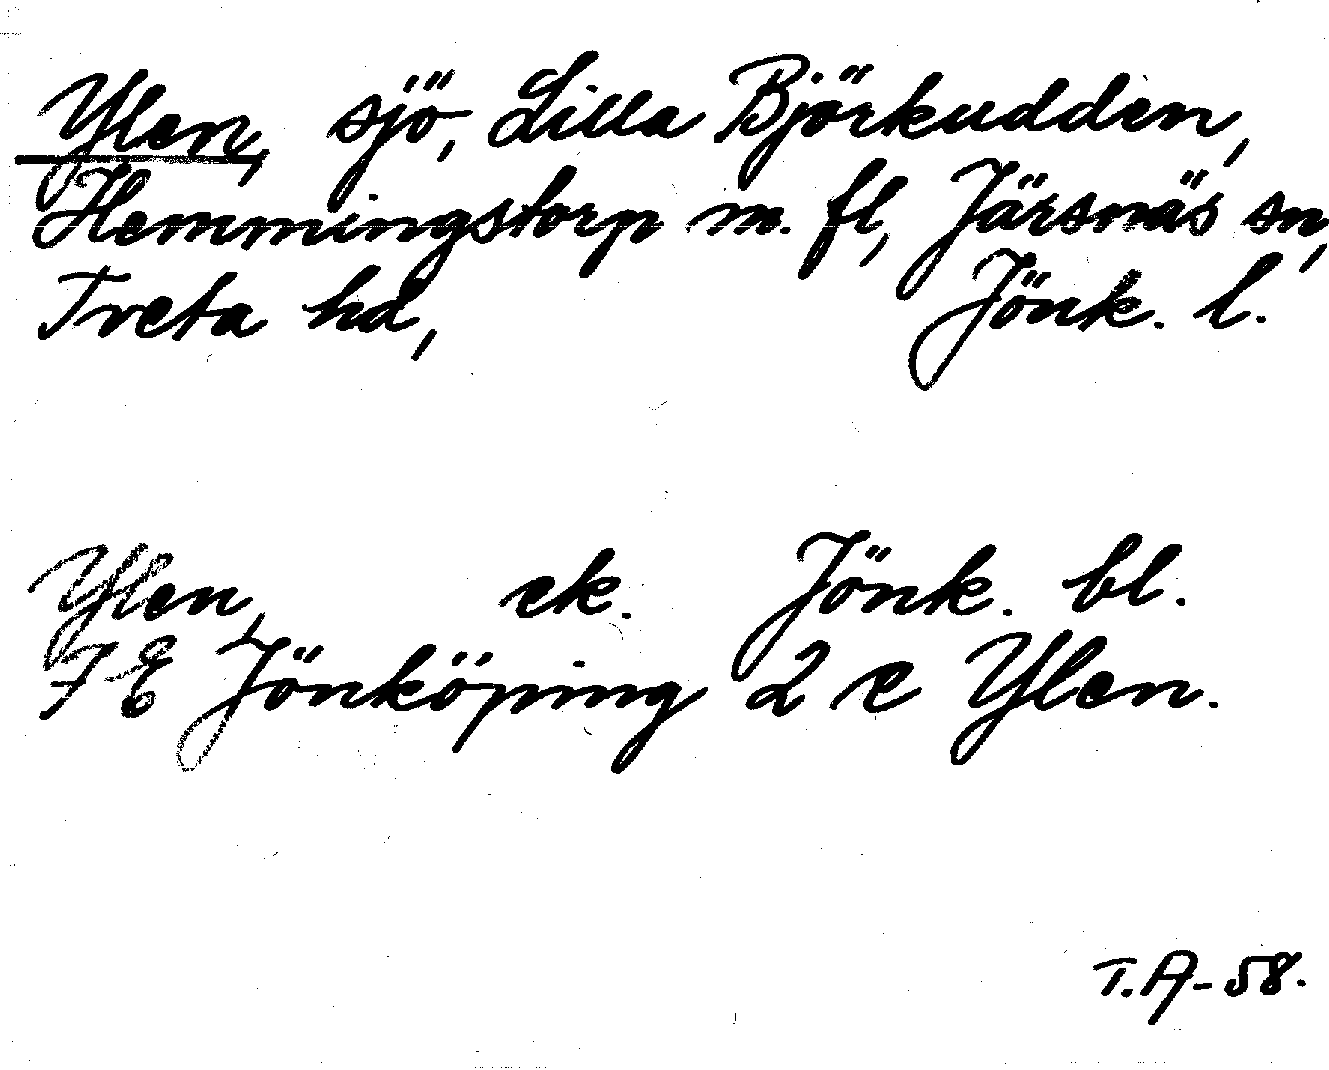 Ylen, sjö, Lilla Björkudden,
Hemmingstorp m. fl, Järsnäs sn,
Tveta hd, Jönk. l.
Ylen, ek. Jönk. bl.
7 E Jönköping 2 e Ylen.
T.A-58.